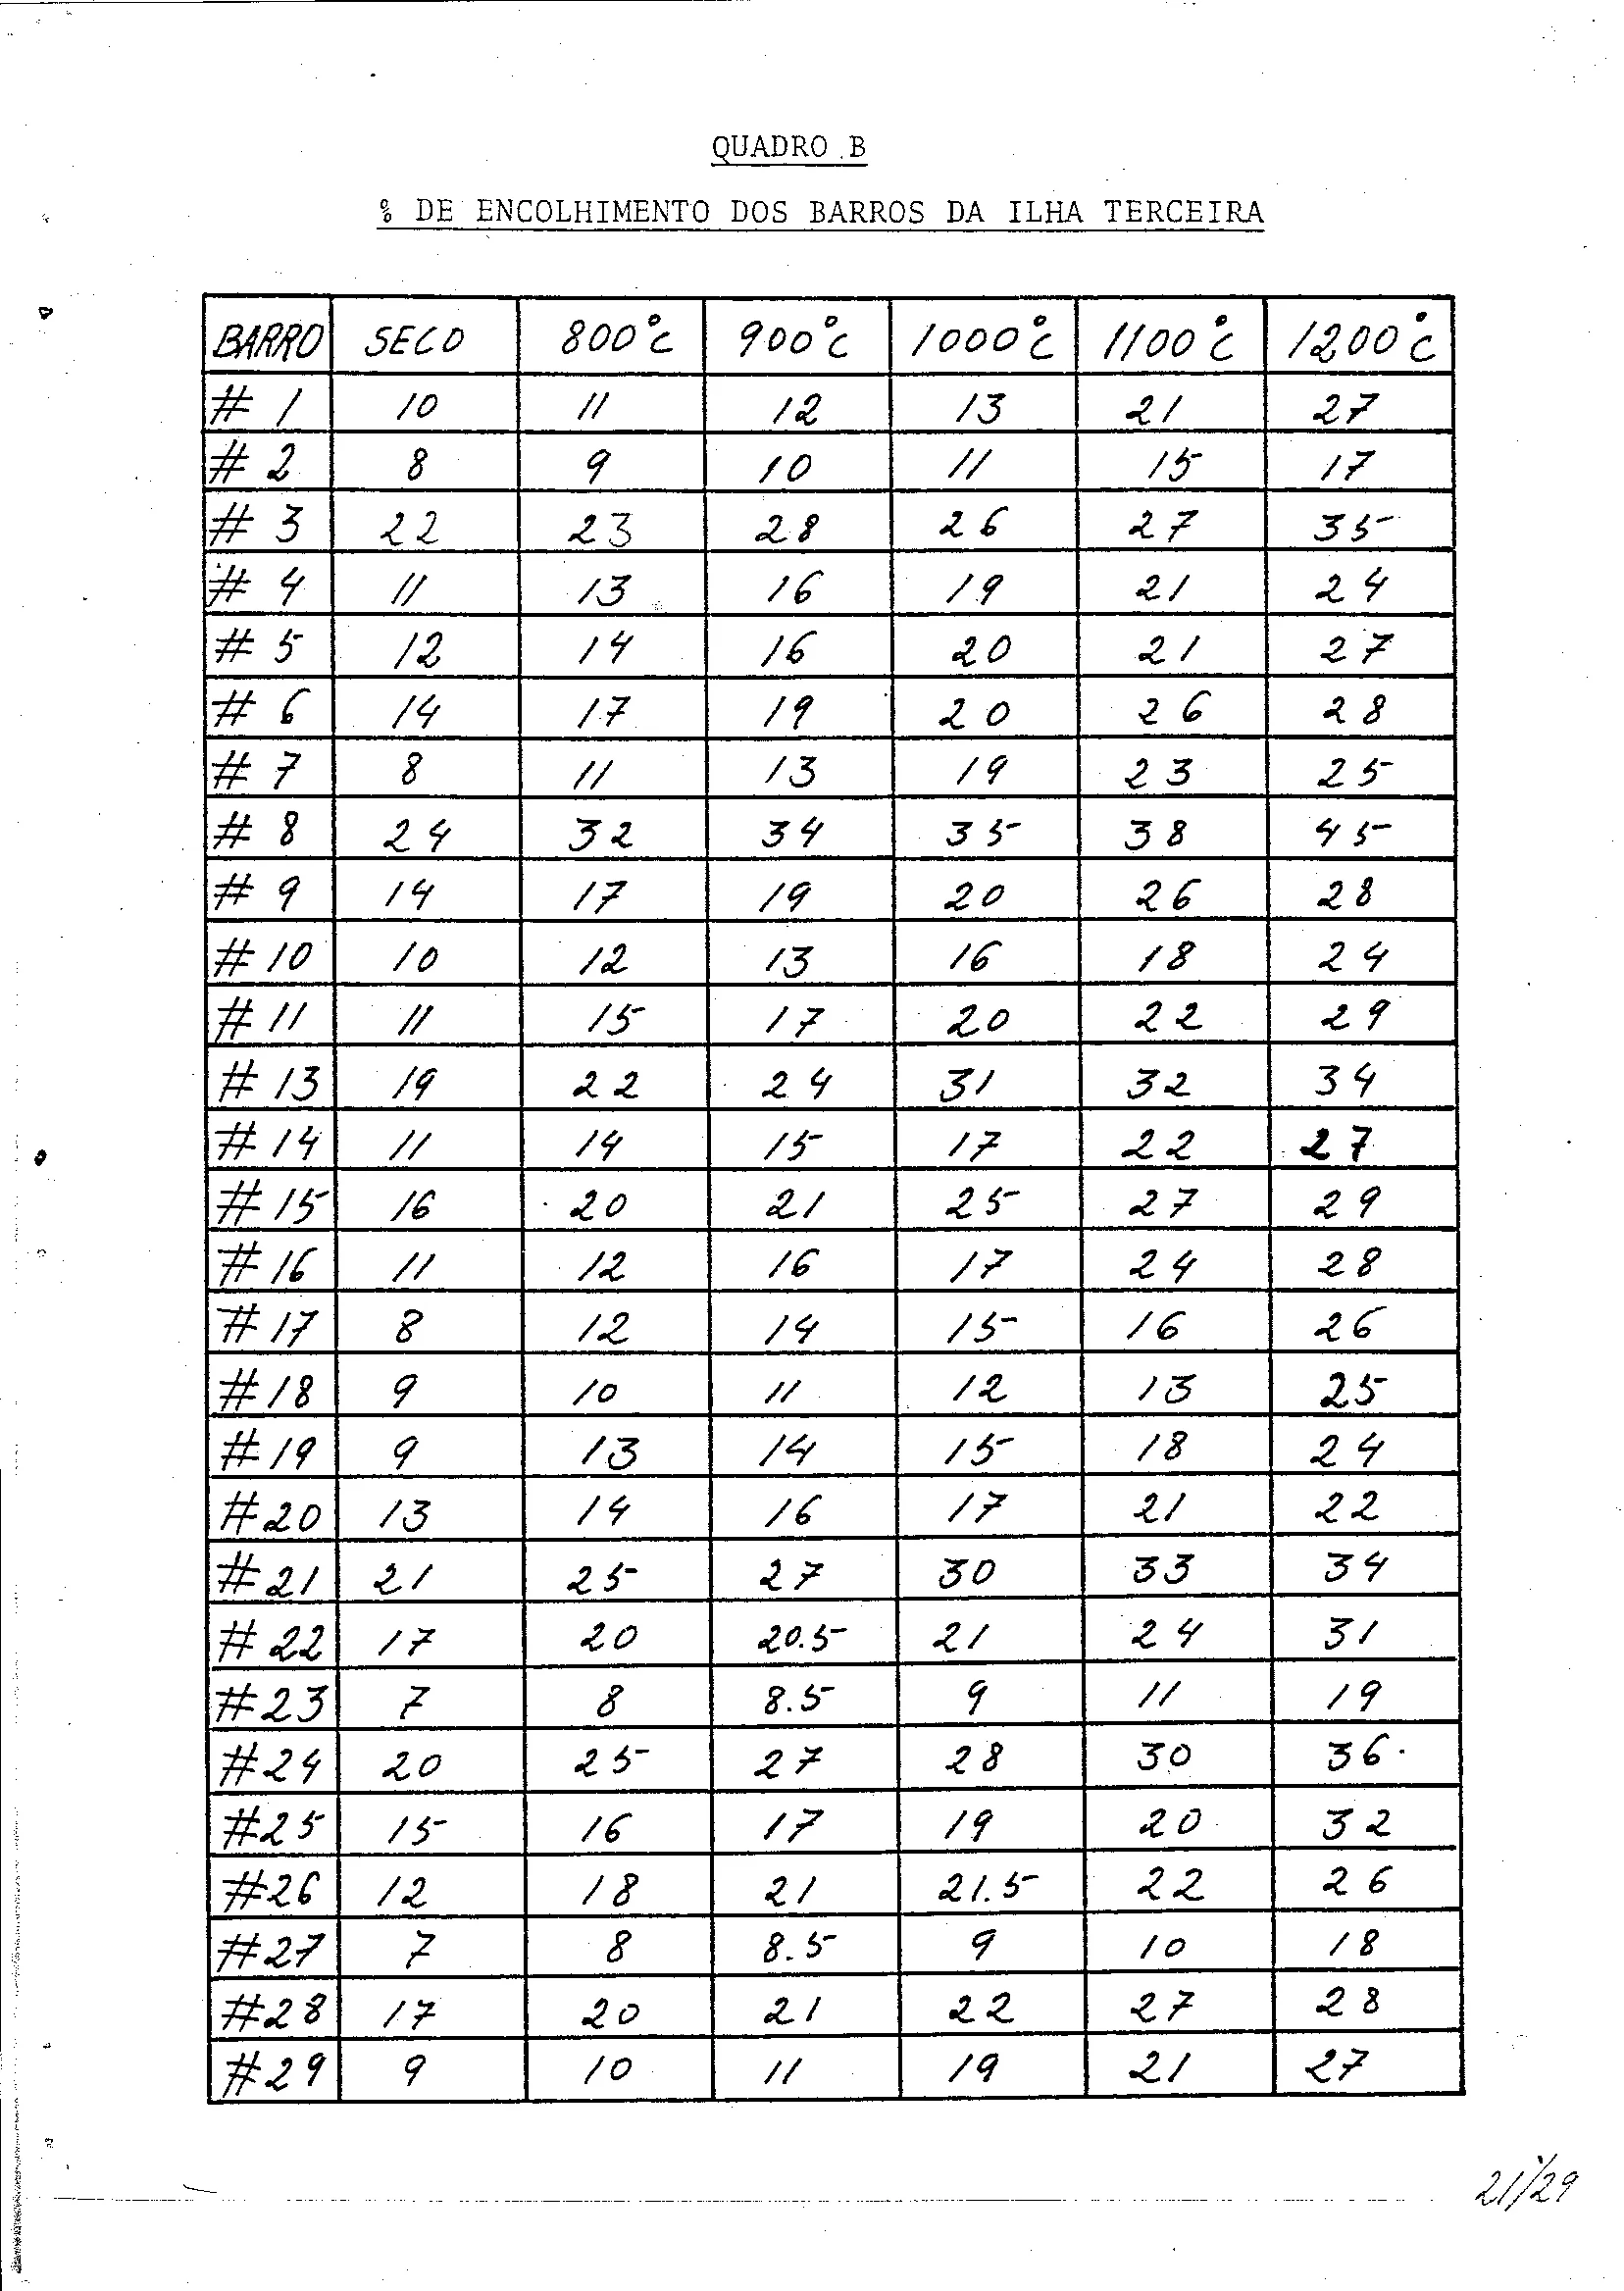 QUADRO B
% DE ENCOLHIMENTO DOS BARROS DA ILHA TERCEIRA
BARRO SECO 800°C 900°C 1000°C 1100°C 1200°C
# 1 10 11 12 13 21 27
# 2 8 9 10 11 15 17
# 3 22 23 28 26 27 35
# 4 11 13 16 19 21 24
# 5 12 14 16 20 21 27
# 6 14 17 19 20 26 28
# 7 8 11 13 19 23 25
# 8 24 32 34 35 38 45
# 9 14 17 19 20 26 28
# 10 10 12 13 16 18 24
# 11 11 15 17 20 22 29
# 13 19 22 24 31 32 34
# 14 11 14 15 17 22 27
# 15 16 20 21 25 27 29
# 16 11 12 16 17 24 28
# 17 8 12 14 15 16 26
# 18 9 10 11 12 13 25
# 19 9 13 14 15 18 24
# 20 13 14 16 17 21 22
# 21 21 25 27 30 33 34
# 22 17 20 20.5 21 24 31
# 23 7 8 8.5 9 11 19
# 24 20 25 27 28 30 36
# 25 15 16 17 19 20 32
# 26 12 18 21 21.5 22 26
# 27 7 8 8.5 9 10 18
# 28 17 20 21 22 27 28
# 29 9 10 11 19 21 27
21/29